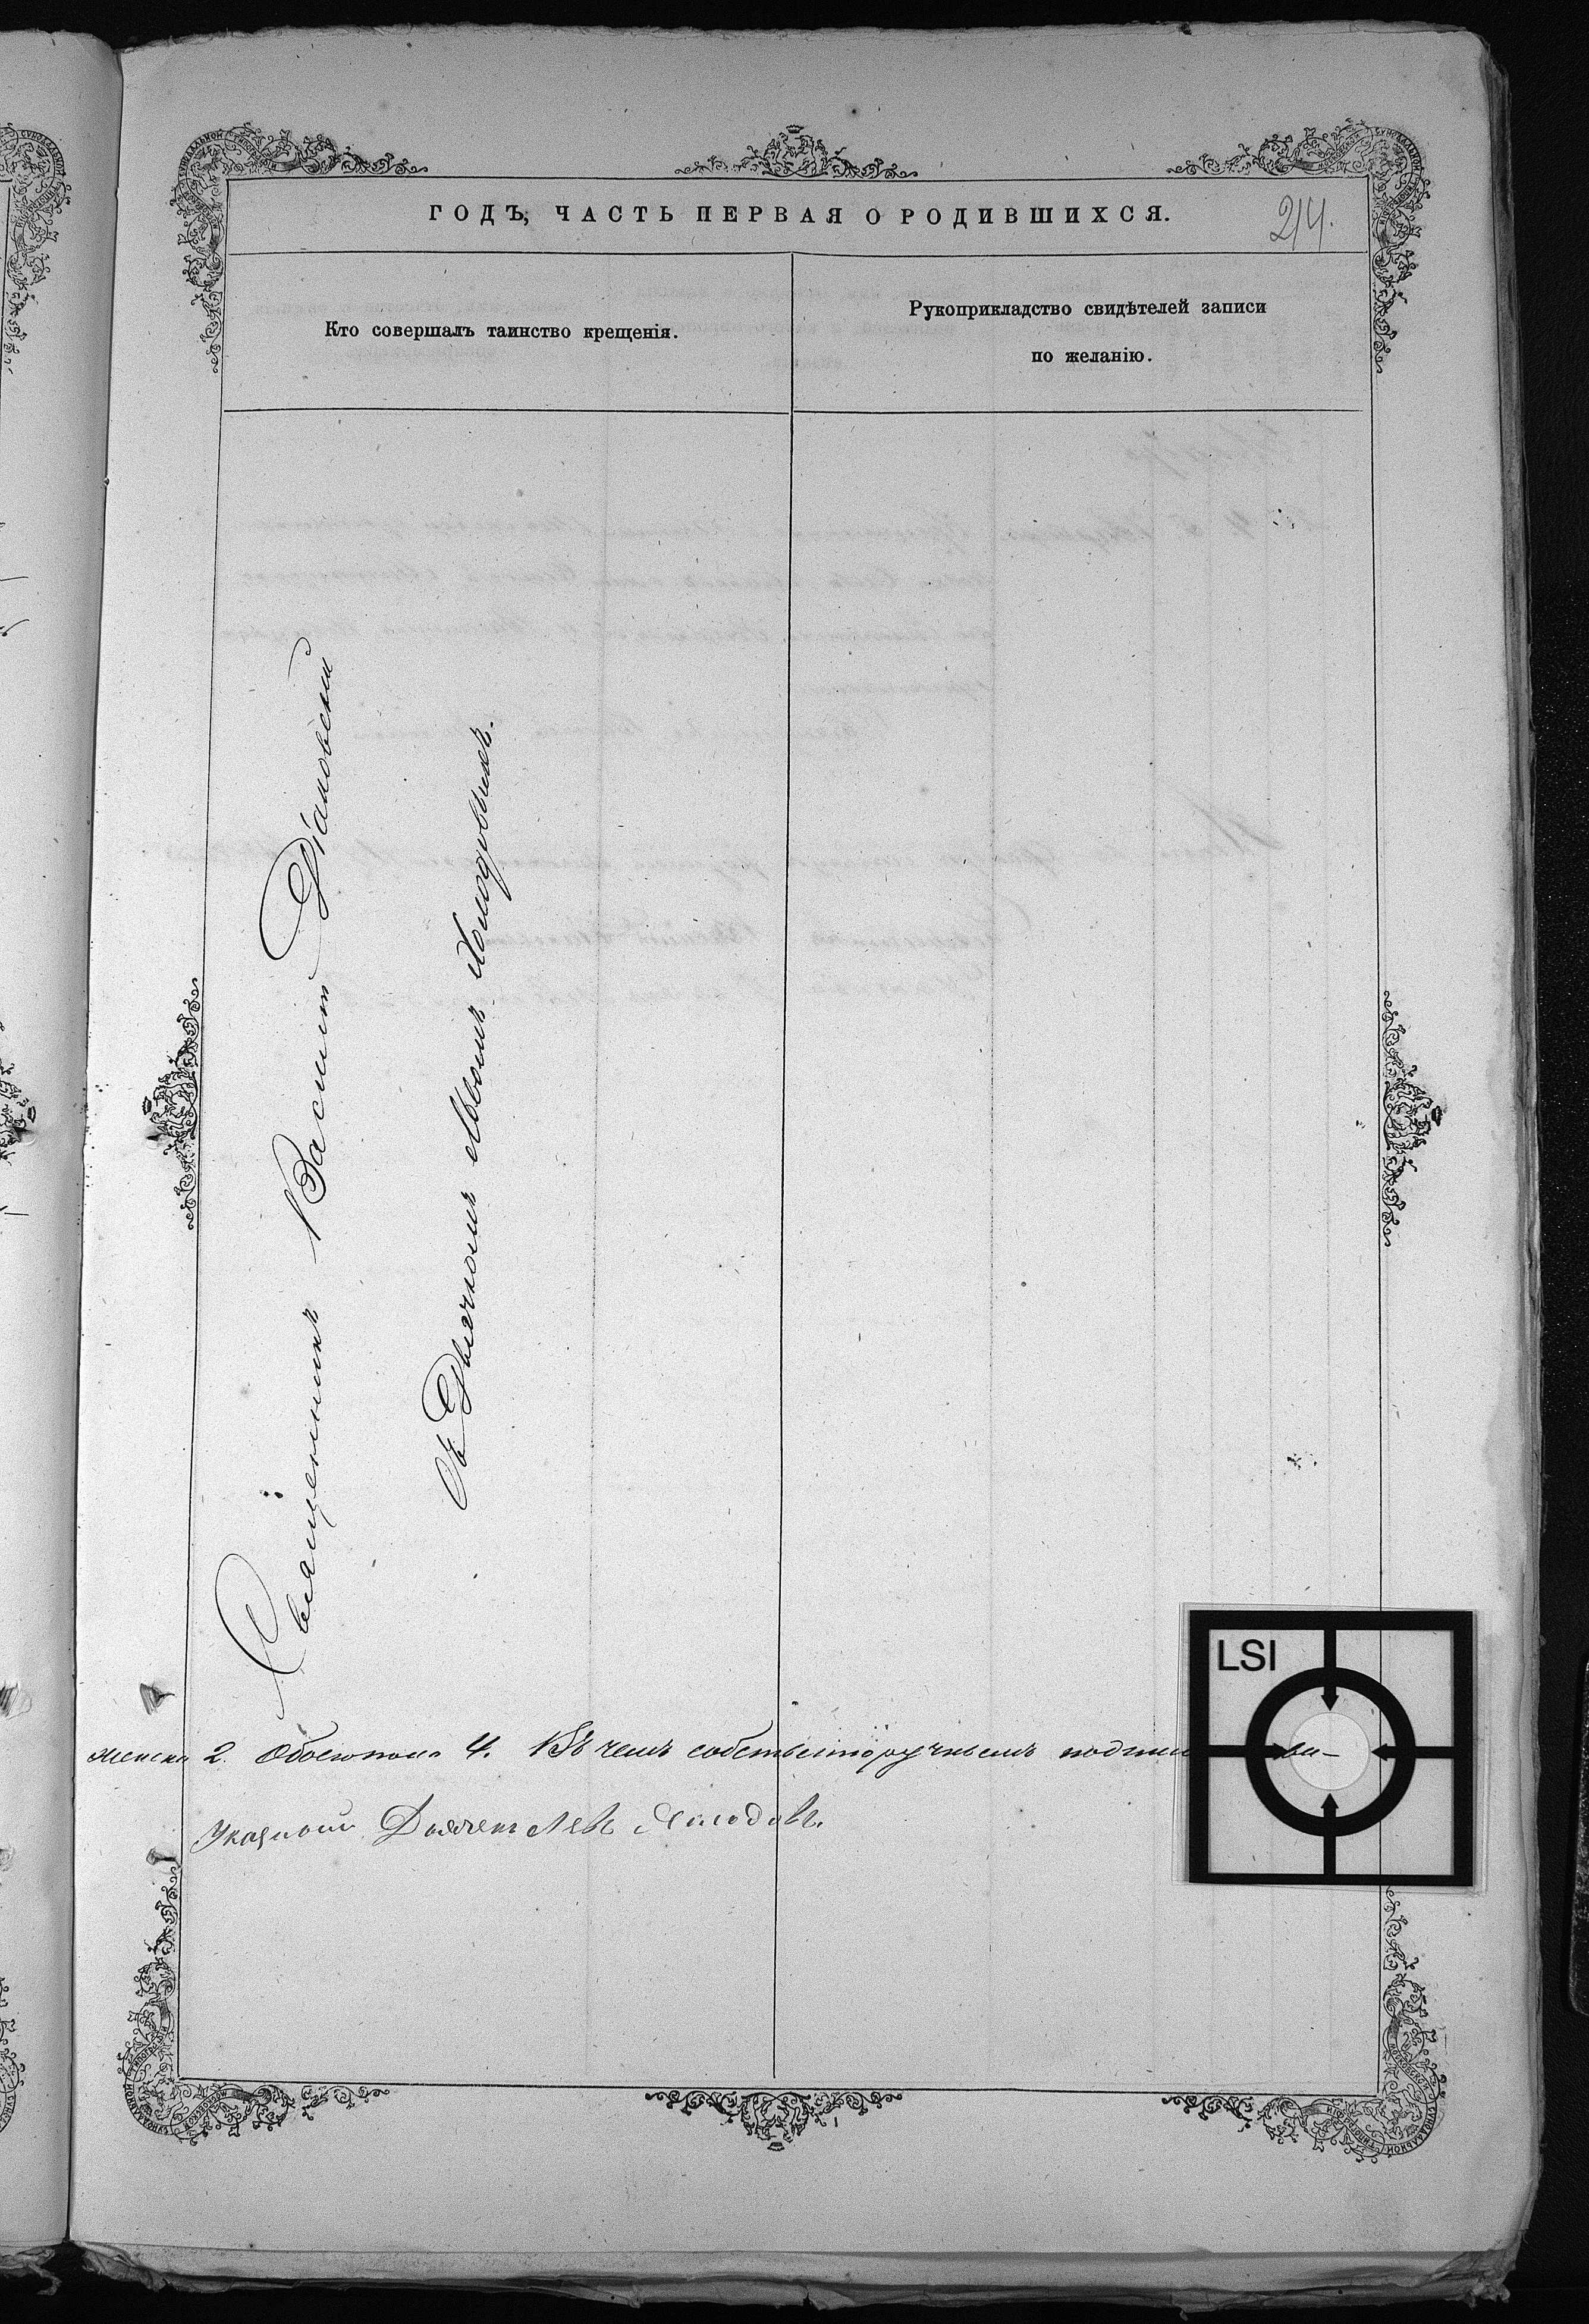 ГОДЪ, ЧАСТЬ ПЕРВАЯ О РОДИВШИХСЯ.
214.
Кто совершалъ таинство крещенія.
Рукоприкладство свидѣтелей записи
по желанію.
Священникъ Василій Діаковскій
Съ Дьячкомъ Львомъ
женска 2. Обоего пола 4. Въ чемъ собственоручнымъ
Указной Дьячекъ Левъ
LSI